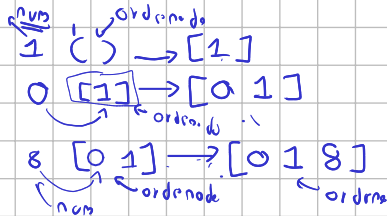 num ordenado
1 () → [1]
0 [1] → [0 1]
ordenado
8 [0 1] → [0 1 8]
num ordenado